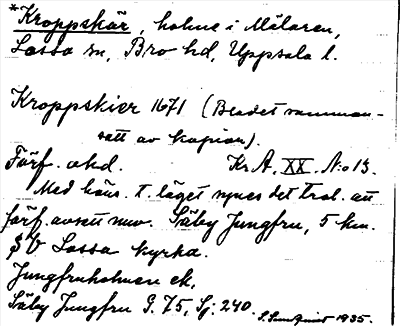 *Kroppskär, holme i Mälaren,
Lossa sn, Bro hd, Uppsala l.
Kroppskier 1671 (Bladet samman-
satt av kopior).
Förf. okd. Kr.A. XX. No 13.
Med häns. t. läget synes det trol. att
förf. avsett nuv. Säby Jungfru, 5 km.
SV Lossa kyrka.
Jungfruholmen ek,
Säby Jungfru G. 75, Sj. 240.
1935.